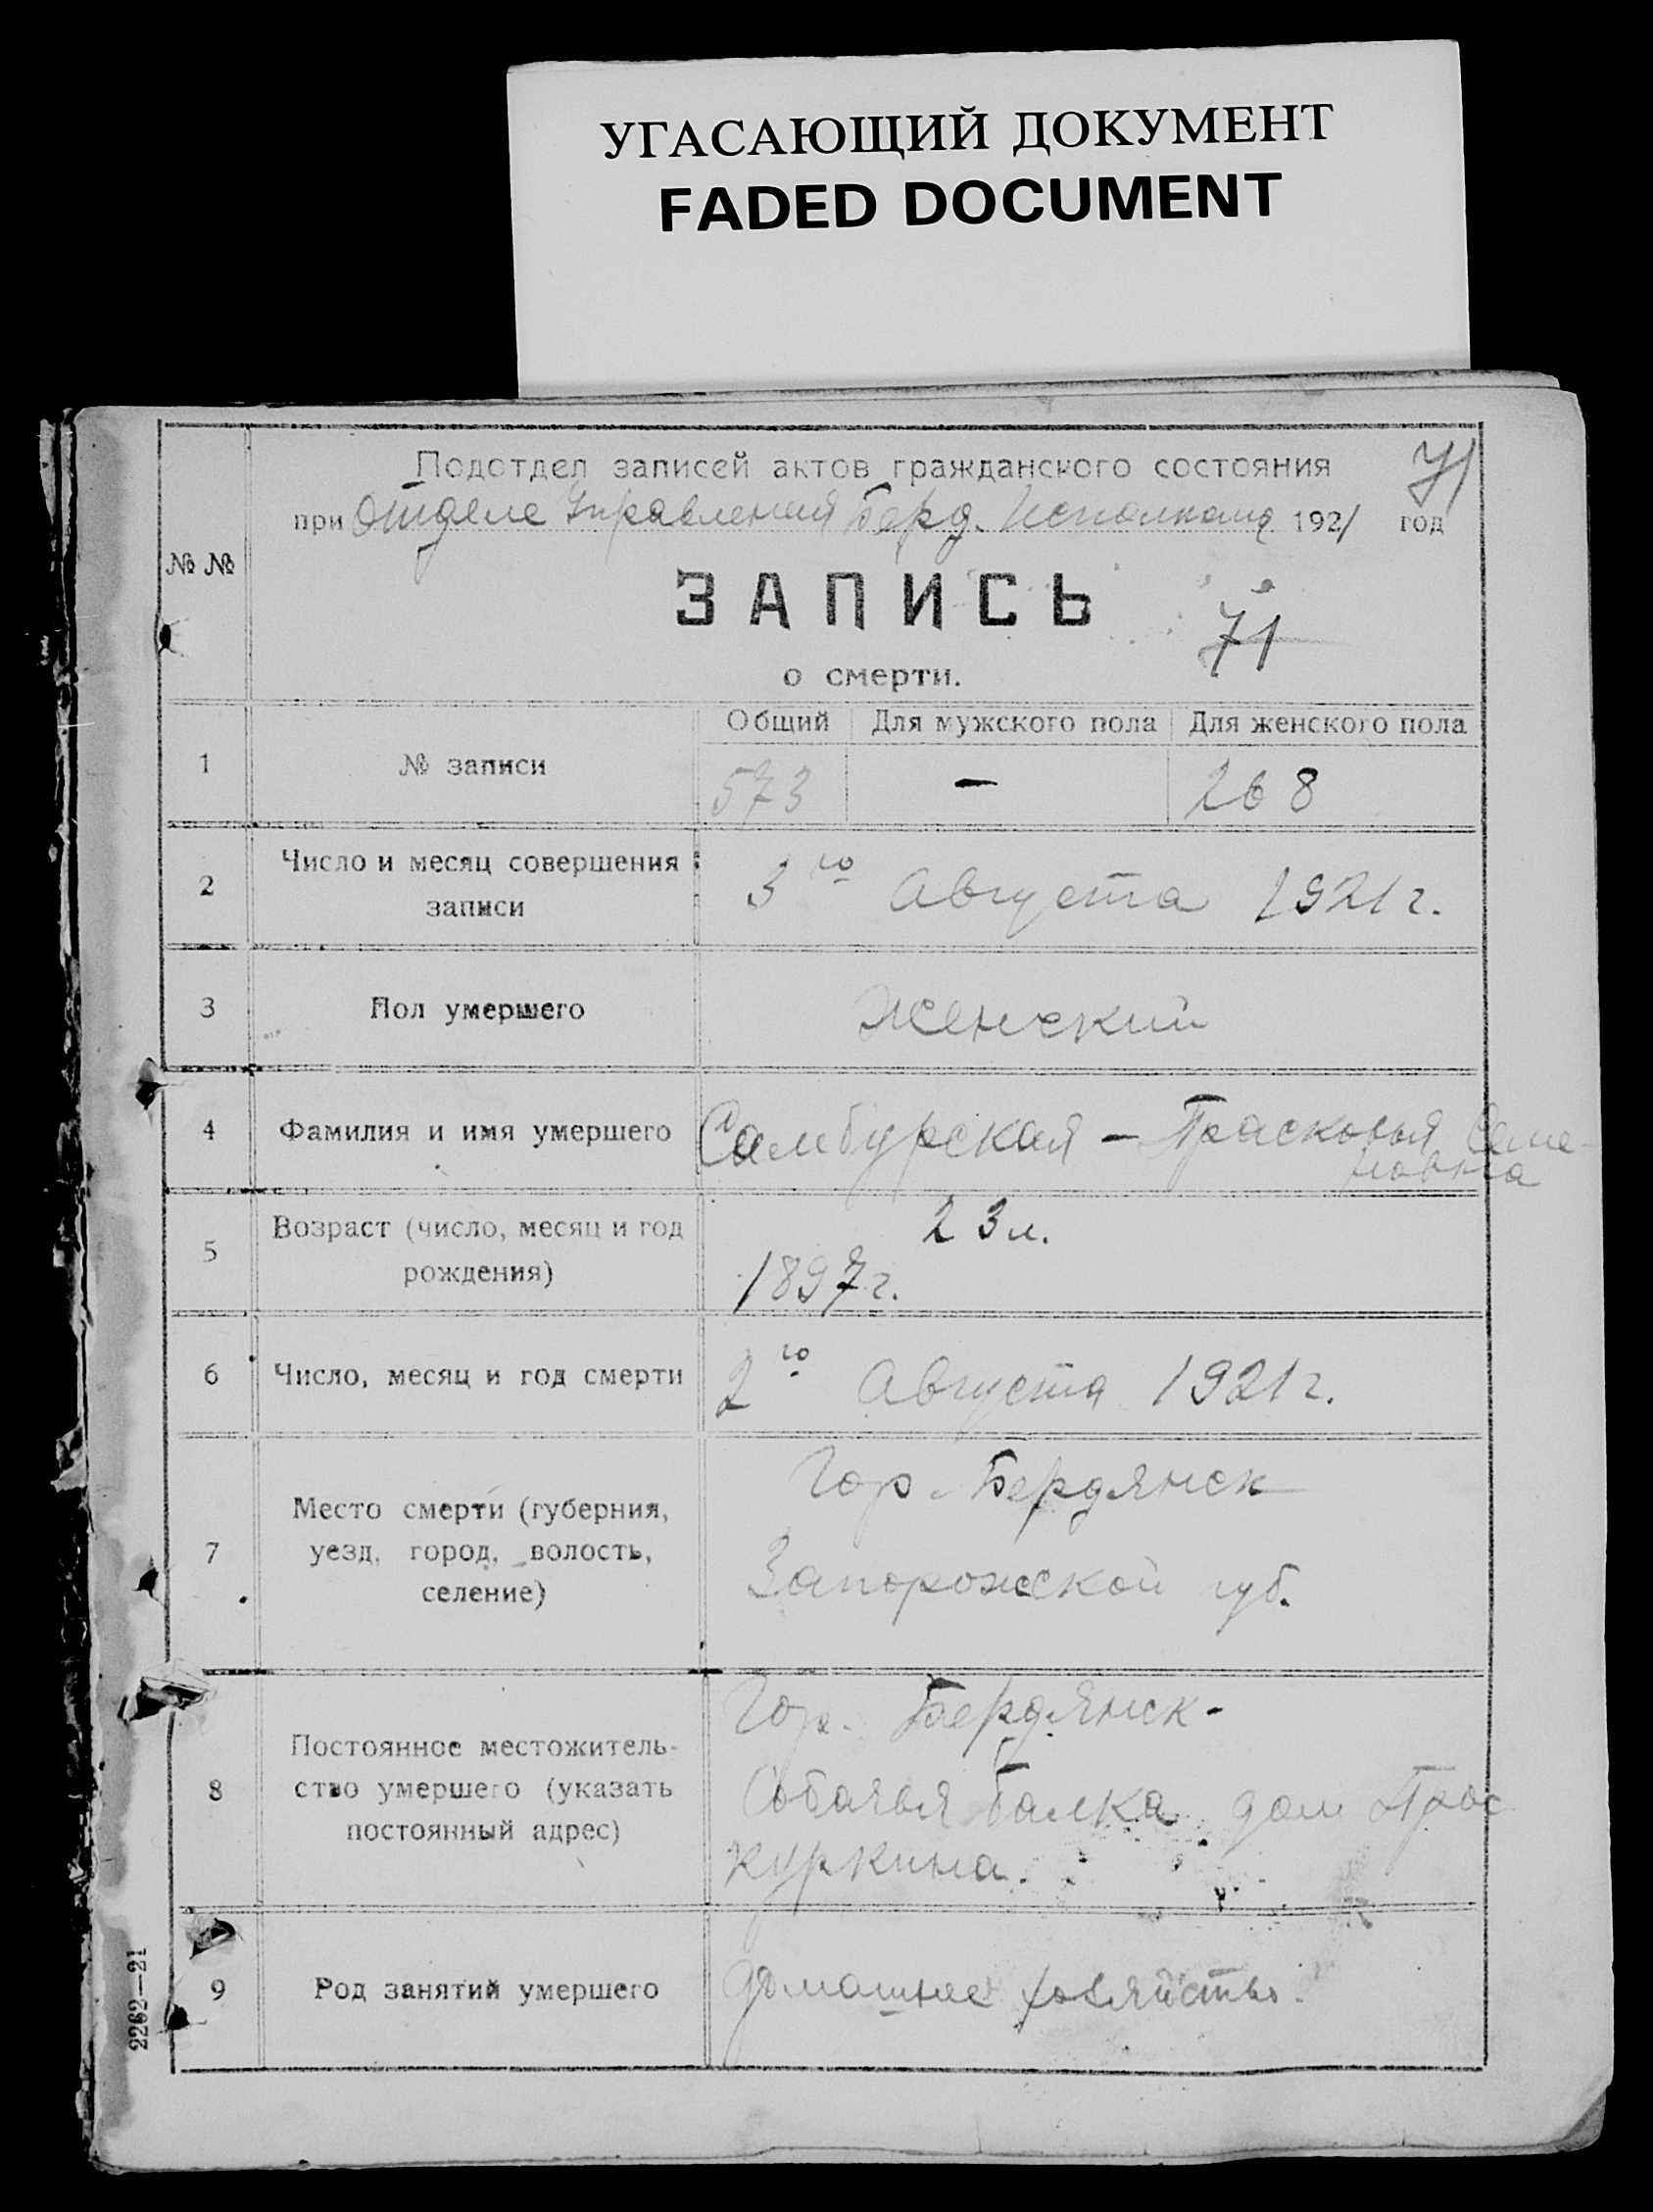 УГАСАЮЩИЙ ДОКУМЕНТ
FADED DOCUMENT
Подотдел записей актов гражданского состояния
71
при Отделе Управления Берд. Исполкома 1921 год
№ №
ЗАПИСЬ
71
о смерти.
Общий Для мужского пола Для женского пола
1 № записи 573 — 268
2 Число и месяц совершения записи 3го Августа 1921 г.
3 Пол умершего Женский
4 Фамилия и имя умершего Самбурская — Прасковья Семе-
новна
5 Возраст (число, месяц и год рождения) 23 л.
1897 г.
6 Число, месяц и год смерти 2го Августа 1921 г.
7 Место смерти (губерния, уезд, город, волость, селение) Гор. Бердянск
Запорожской губ.
8 Постоянное местожитель-
ство умершего (указать
постоянный адрес)
Гор. Бердянск -
Собачья балка дом Прос
куркина.
9 Род занятий умершего домашнее хозяйство.
2262—21